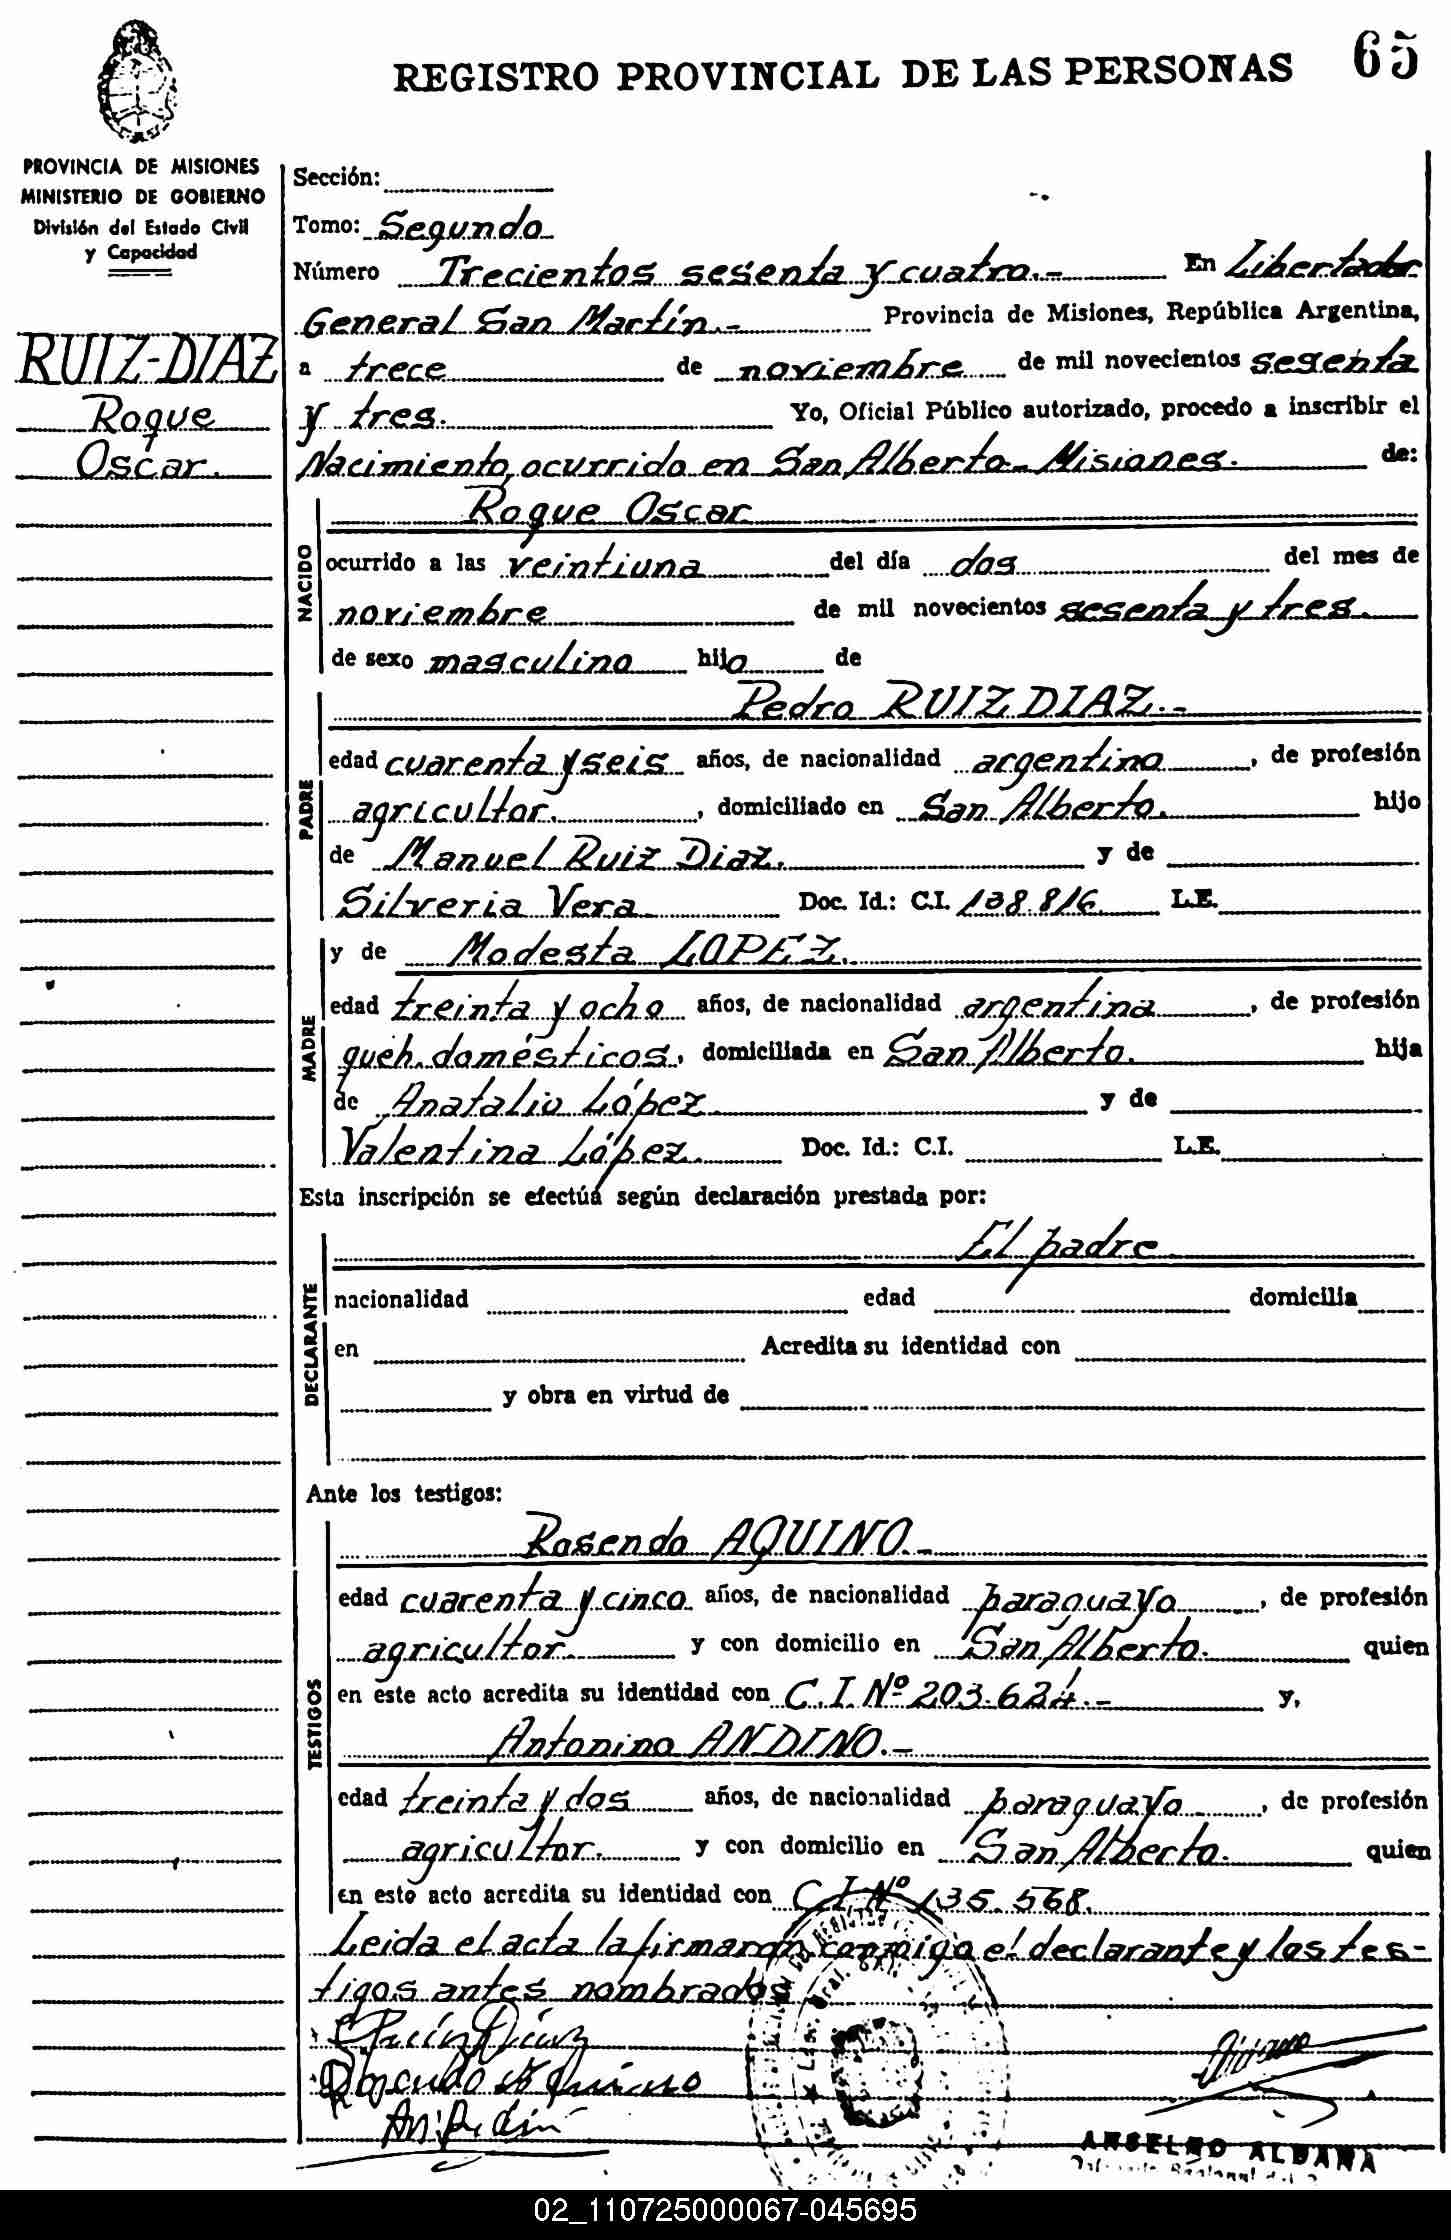 REGISTRO PROVINCIAL DE LAS PERSONAS 65
PROVINCIA DE MISIONES
MINISTERIO DE GOBIERNO
División del Estado Civil
y Capacidad
RUIZ-DIAZ
Roque
Oscar.
Sección:
Tomo: Segundo
Número Trecientos sesenta y cuatro.- En Libertador
General San Martín.- Provincia de Misiones, República Argentina,
a trece de noviembre de mil novecientos sesenta
y tres. Yo, Oficial Público autorizado, procedo a inscribir el
Nacimiento, ocurrido en San Alberto- Misiones. de:
NACIDO
Roque Oscar
ocurrido a las veintiuna del día dos del mes de
noviembre de mil novecientos sesenta y tres.
de sexo masculino hijo de
PADRE
Pedro RUIZ DIAZ.-
edad cuarenta y seis años, de nacionalidad argentino, de profesión
agricultor. , domiciliado en San Alberto. hijo
de Manuel Ruiz Diaz. y de
Silveria Vera Doc. Id.: C.I. 138.816. L.E.
MADRE
y de Modesta LOPEZ.
edad treinta y ocho años, de nacionalidad argentina , de profesión
queh. domésticos, domiciliada en San Alberto. hija
de Anatalio López y de
Valentina López. Doc. Id.: C.I. L.E.
Esta inscripción se efectúa según declaración prestada por:
DECLARANTE
El padre
nacionalidad edad domicilia
en Acredita su identidad con
y obra en virtud de
Ante los testigos:
TESTIGOS
Rosendo AQUINO.-
edad cuarenta y cinco años, de nacionalidad paraguayo , de profesión
agricultor. y con domicilio en San Alberto. quien
en este acto acredita su identidad con C.I. Nº 203.624.- y,
Antonino ANDINO.-
edad treinta y dos años, de nacionalidad paraguayo , de profesión
agricultor. y con domicilio en San Alberto. quien
en este acto acredita su identidad con C.I Nº 135.568.
Leida el acta la firmaron conmigo el declarante y los tes-
tigos antes nombrados
ANSELMO ALDANA
02_110725000067-045695